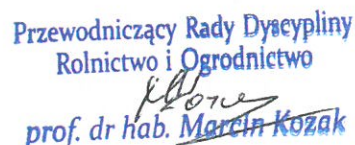 Przewodniczący Rady Dyscypliny
Rolnictwo i Ogrodnictwo
prof. dr hab. Marcin Kozak